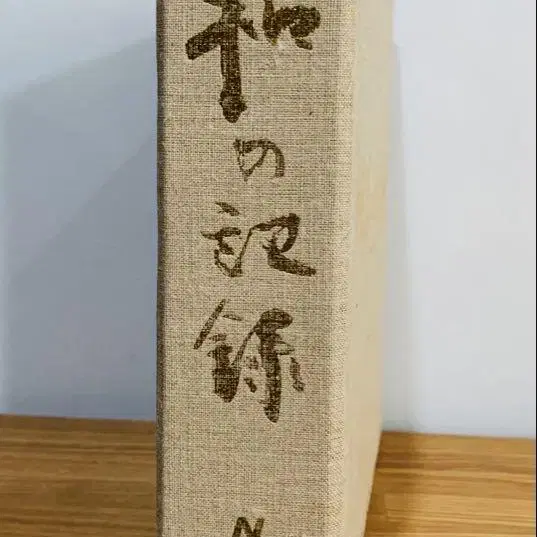 和の記録
N